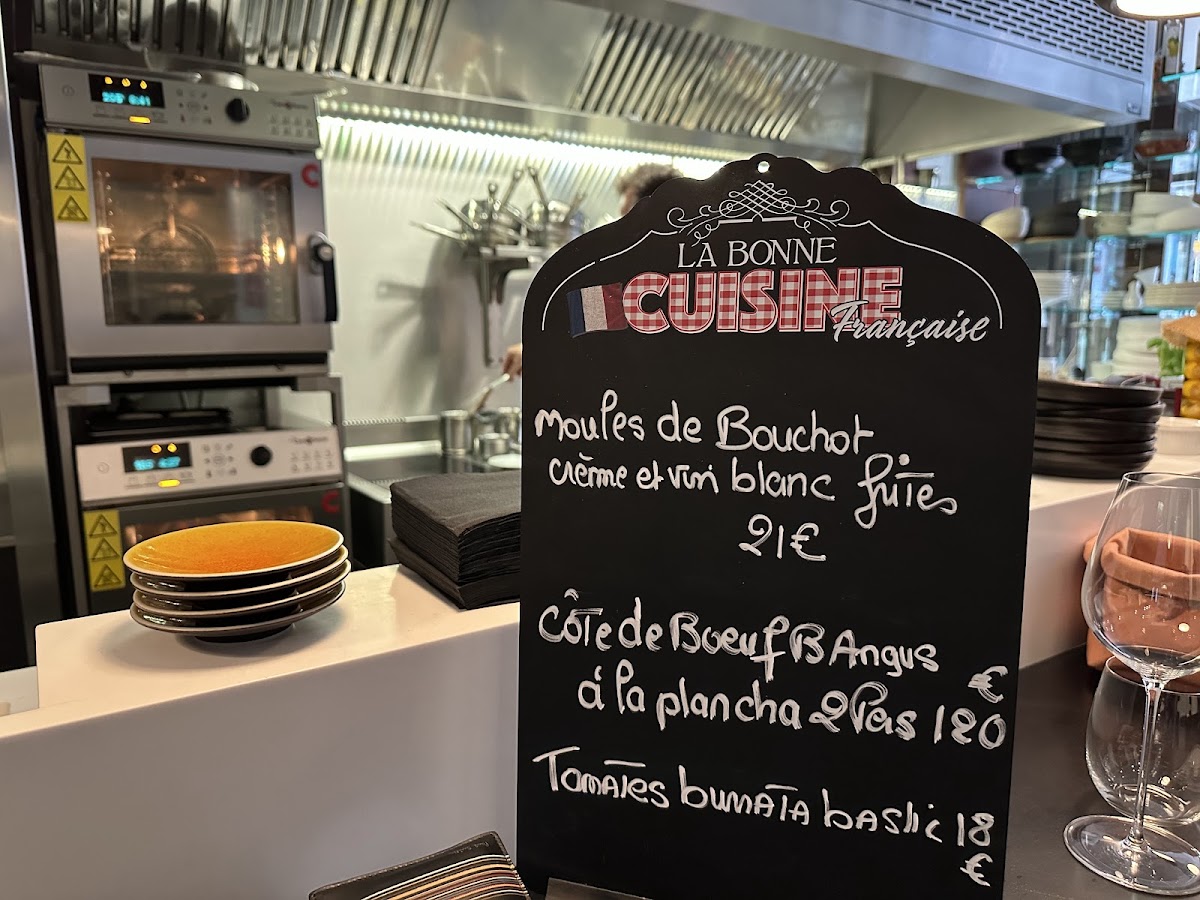 LA BONNE
CUISINE
Française
Moules de Bouchot
crème et vin blanc frites
21€
Côte de Boeuf B Angus
à la plancha 2 Pers 120 €
Tomates burrata basilic 18
€